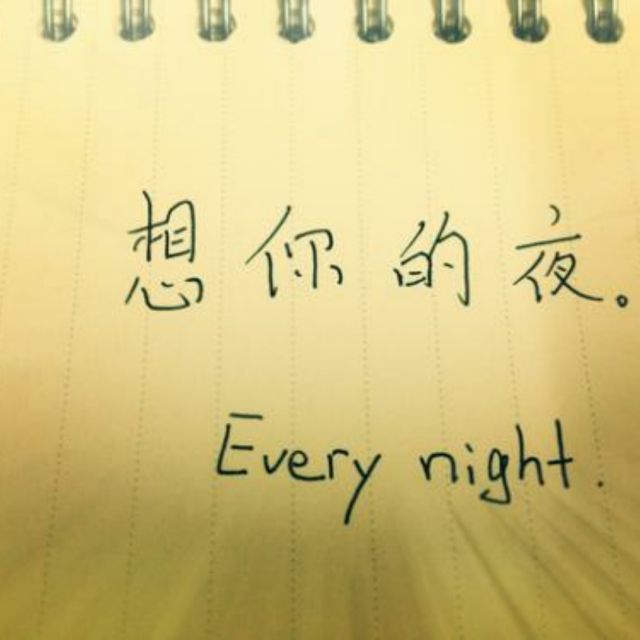 想你的夜。
Every night.